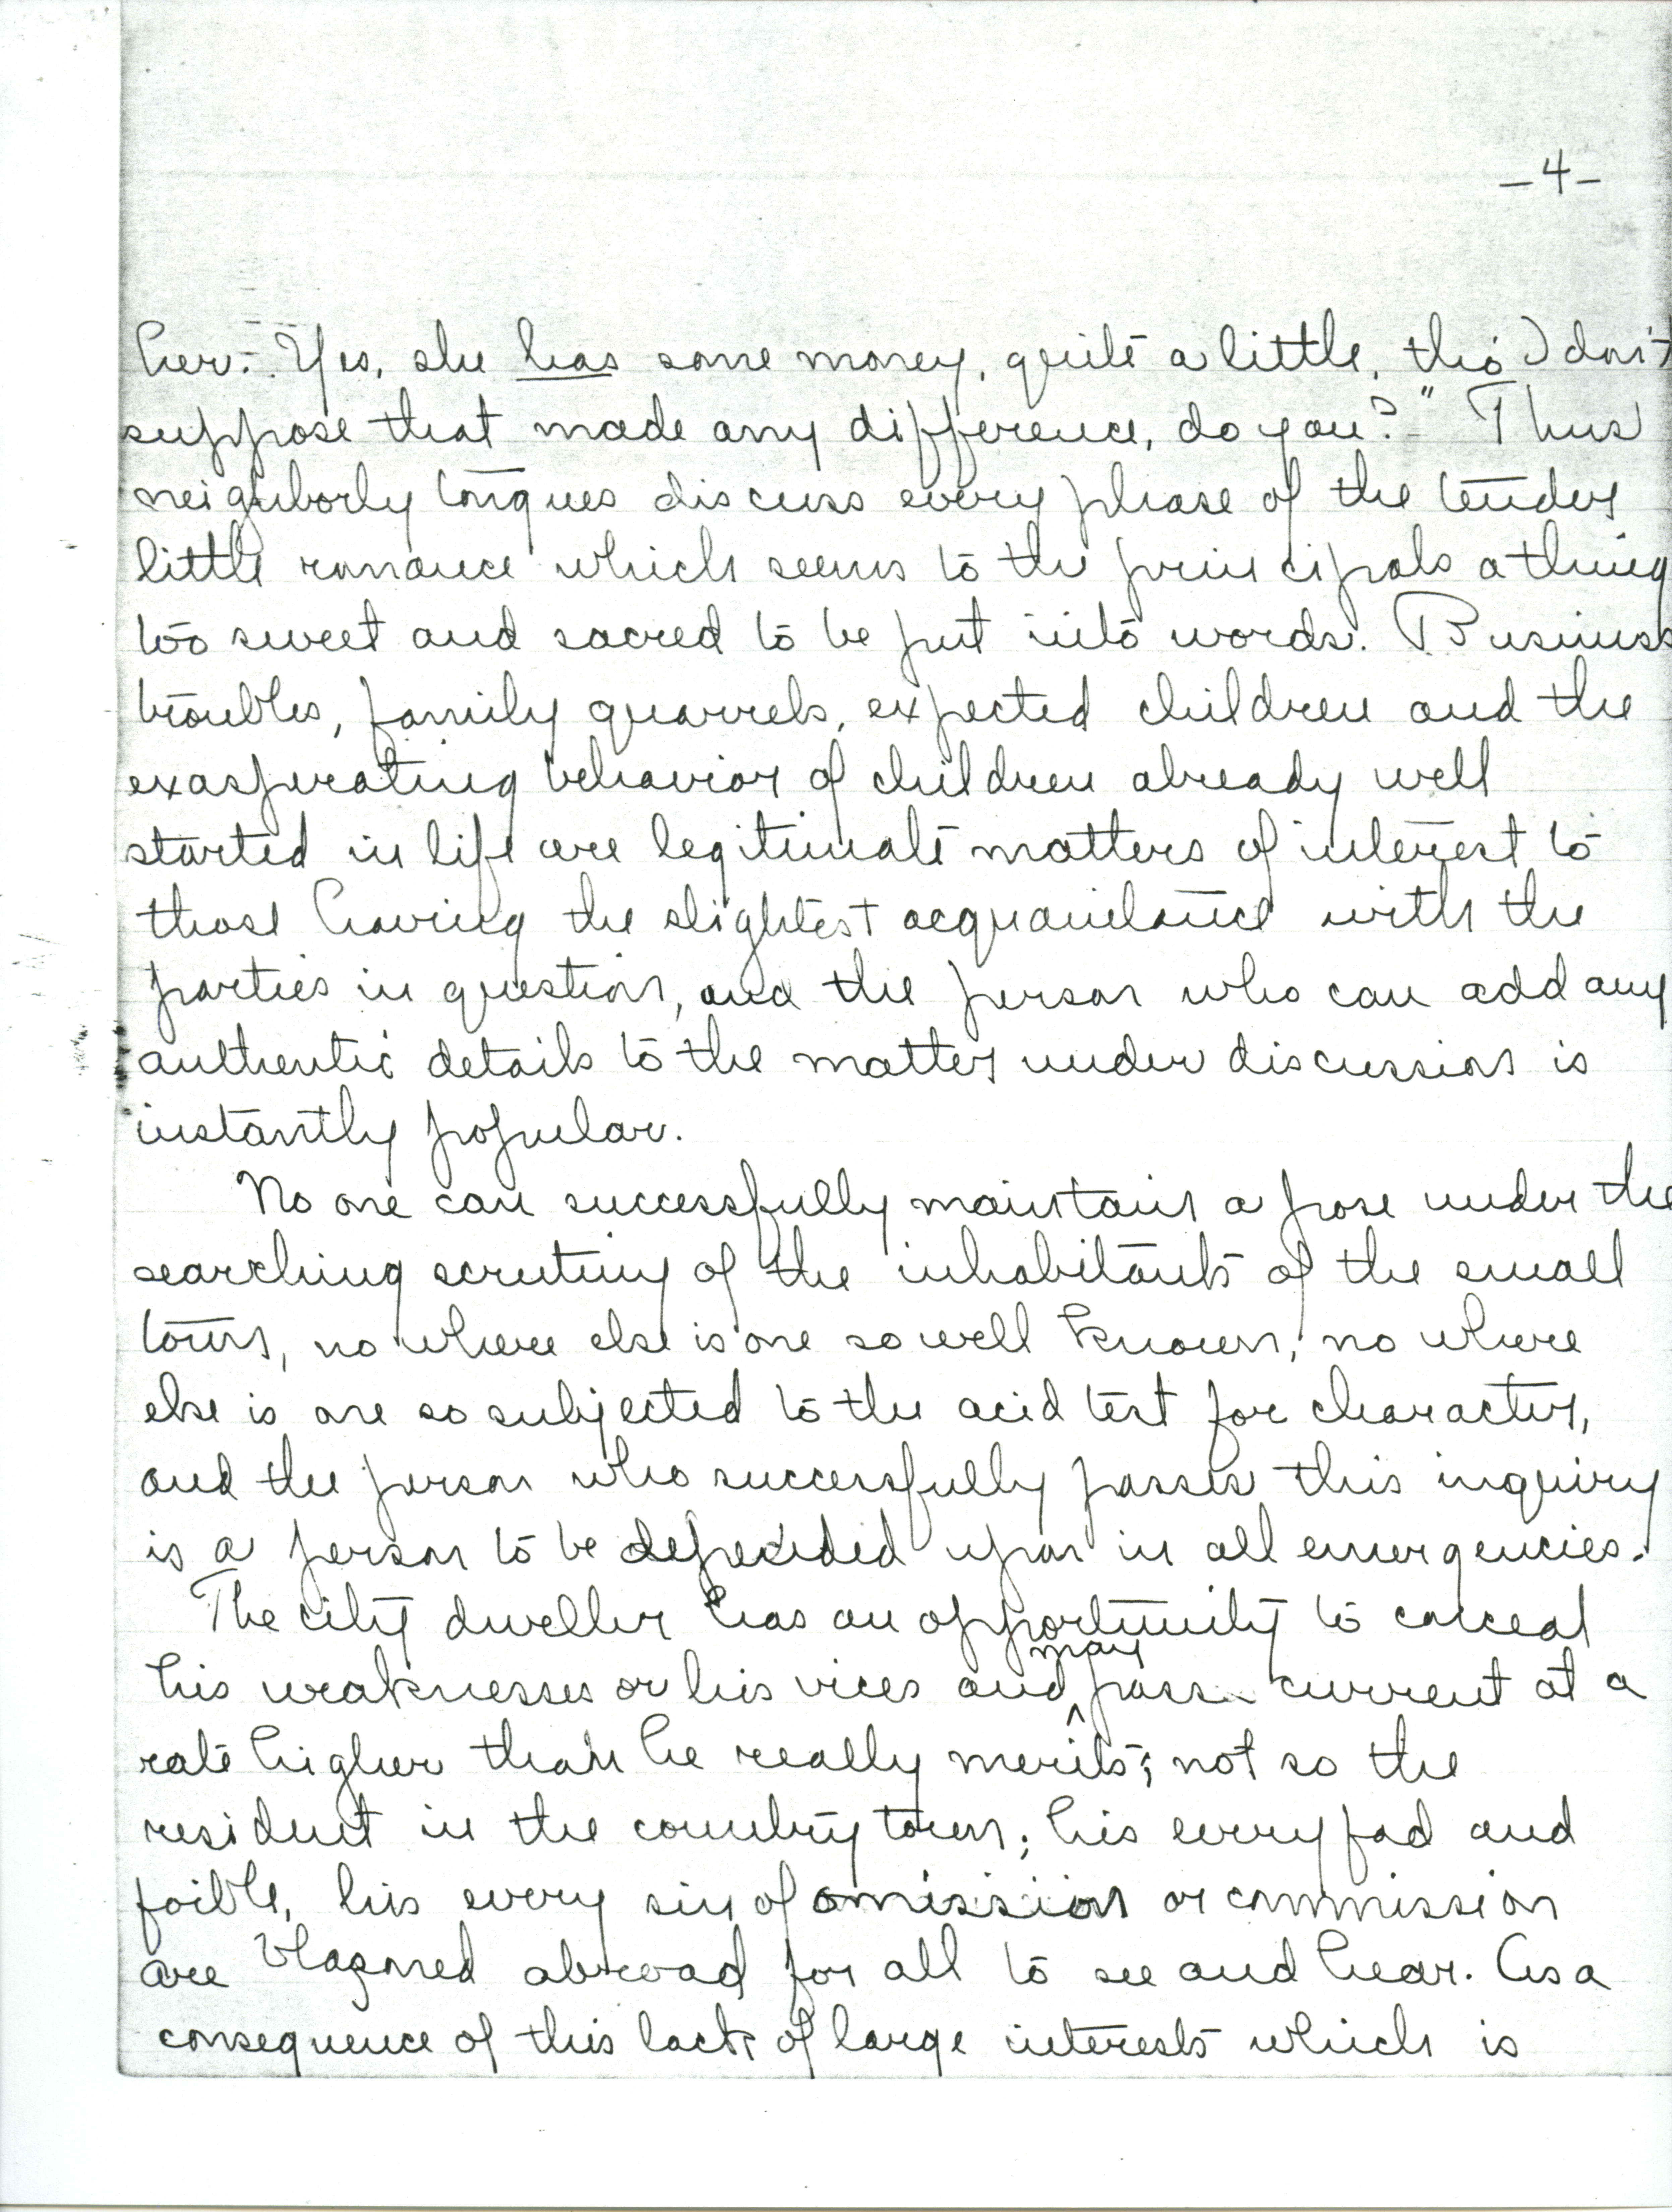 -4-
her. Yes, she has some money, quite a little, tho I don't
suppose that made any difference, do you?" Thus
neighborly tongues discuss every phase of the tender
little romance which seems to the principals a thing
too sweet and sacred to be put into words. Business
troubles, family quarrels, expected children and the
exasperating behavior of children already well
started in life are legitimate matters of interest to
those having the slightest acquaintance with the
parties in question, and the person who can add any
authentic details to the matter under discussion is
instantly popular.
No one can successfully maintain a pose under the
searching scrutiny of the inhabitants of the small
town, no where else is one so well known, no where
else is one so subjected to the acid test for character,
and the person who successfully passes this inquiry
is a person to be depended upon in all emergencies.
The city dweller has an opportunity to conceal
his weaknesses or his vices and may pass current at a
rate higher than he really merits; not so the
resident in the country town; his every fad and
foible, his every sin of omission or commission
are blazoned abroad for all to see and hear. As a
consequence of this lack of large interests which is